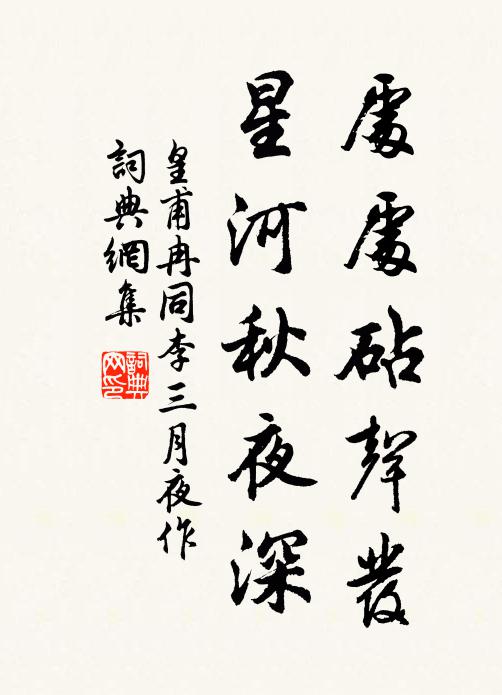 處處砧聲發
星河秋夜深
皇甫冉同李三月夜作
詞典網集
詞典網印